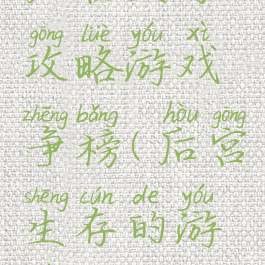 gōng lüè yóu xì
攻略游戏
zhēng bǎng hòu gōng
争榜(后宫
shēng cún de yóu
生存的游